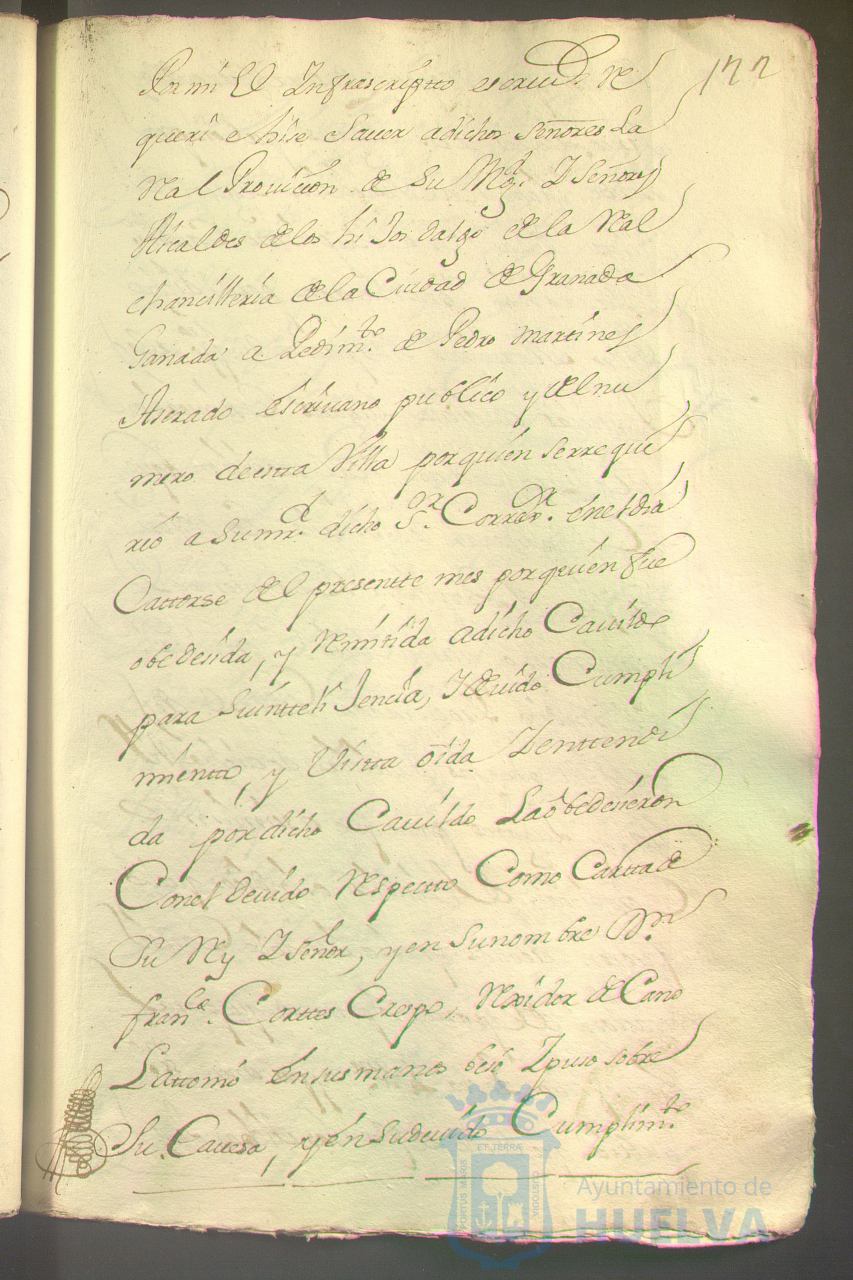 177
En mi El Infrascriptto escriv.º Re
queri e hise Saver adichos señores La
Real Provicion de Su Mag.d Y Señores
Alcaldes delos hiJos dalgo de la Real
chancilleria de la Ciudad de Granada
Ganada a Pedim.to de Pedro Martines
Aserado escrivano publico y del nu
mero de esta Villa por quien serreque
rio a sumr.d dicho S.or Corre.or en el dia
Cattorse del presentte mes por quien fue
obedesida, y Remitida a dicho Cavildo
para suintteliJencia, Y devido Cumpli
mientto, y Vistta oida Y enttendi
da por dicho Cavildo La obedesieron
Con el devido Respectto Como Cartta de
Su Rey Y señor, y en su nombre D.n
fran.co Corttes Crespo, Rexidor de Cano
La ttomó en sus manos besó Y puso sobre
Su Cavesa, y en su devido Cumplim.to
PORTUS MARIS ET TERRÆ CUSTODIA
Ayuntamiento de
HUELVA